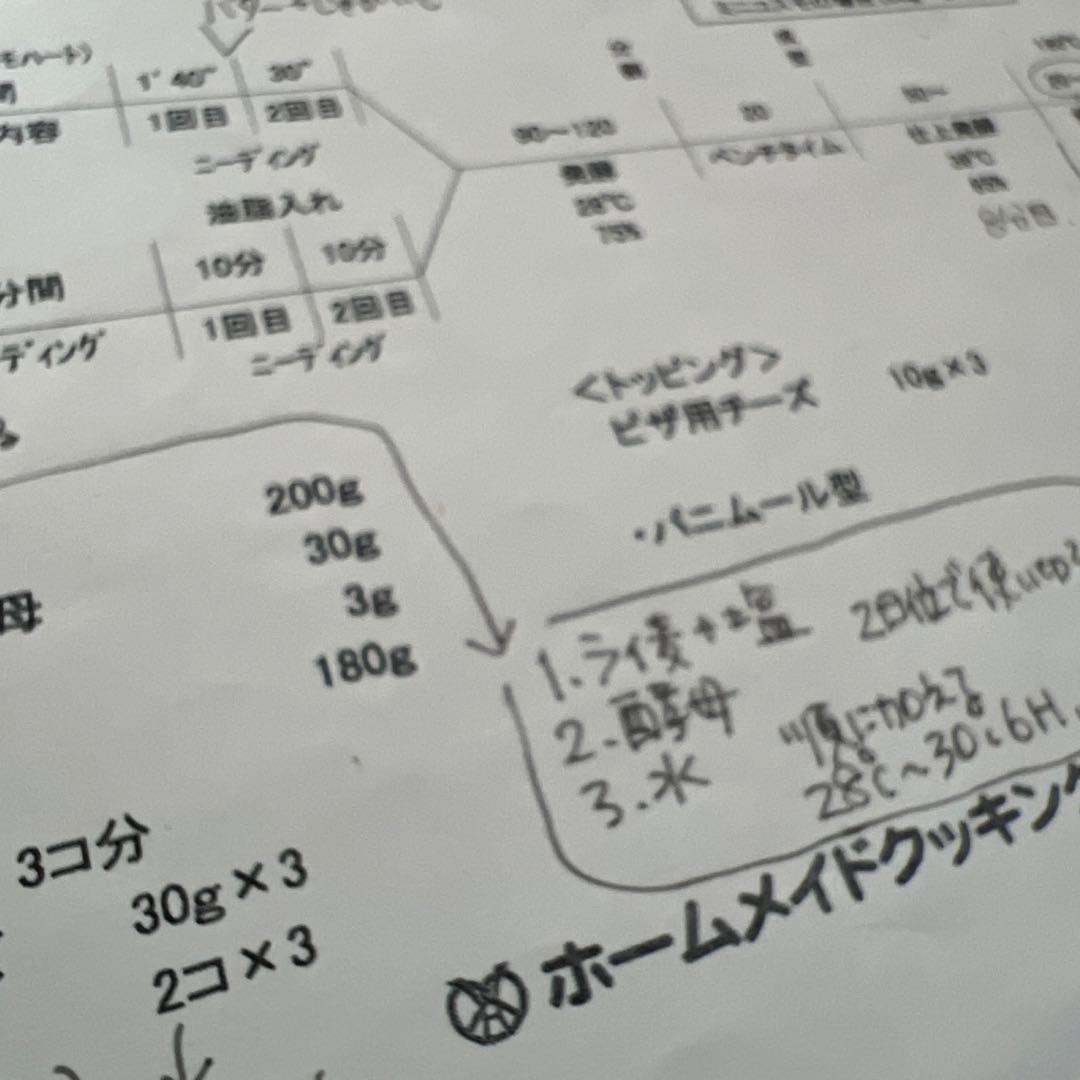 1' 40" 30"
内容 1回目 2回目
ニーディング
油脂入れ
10分 10分
分間 1回目 2回目
ディング ニーディング
90〜120 20
発酵 ベンチタイム 仕上発酵
28℃
75%
<トッピング>
ピザ用チーズ 10g×3
・パニムール型
200g
30g
母 3g
180g
1.ライ麦+塩 2日位で使い
2.酵母 順に加える
3.水 28℃〜30℃6H
3コ分
30g×3
2コ×3
ホームメイドクッキング